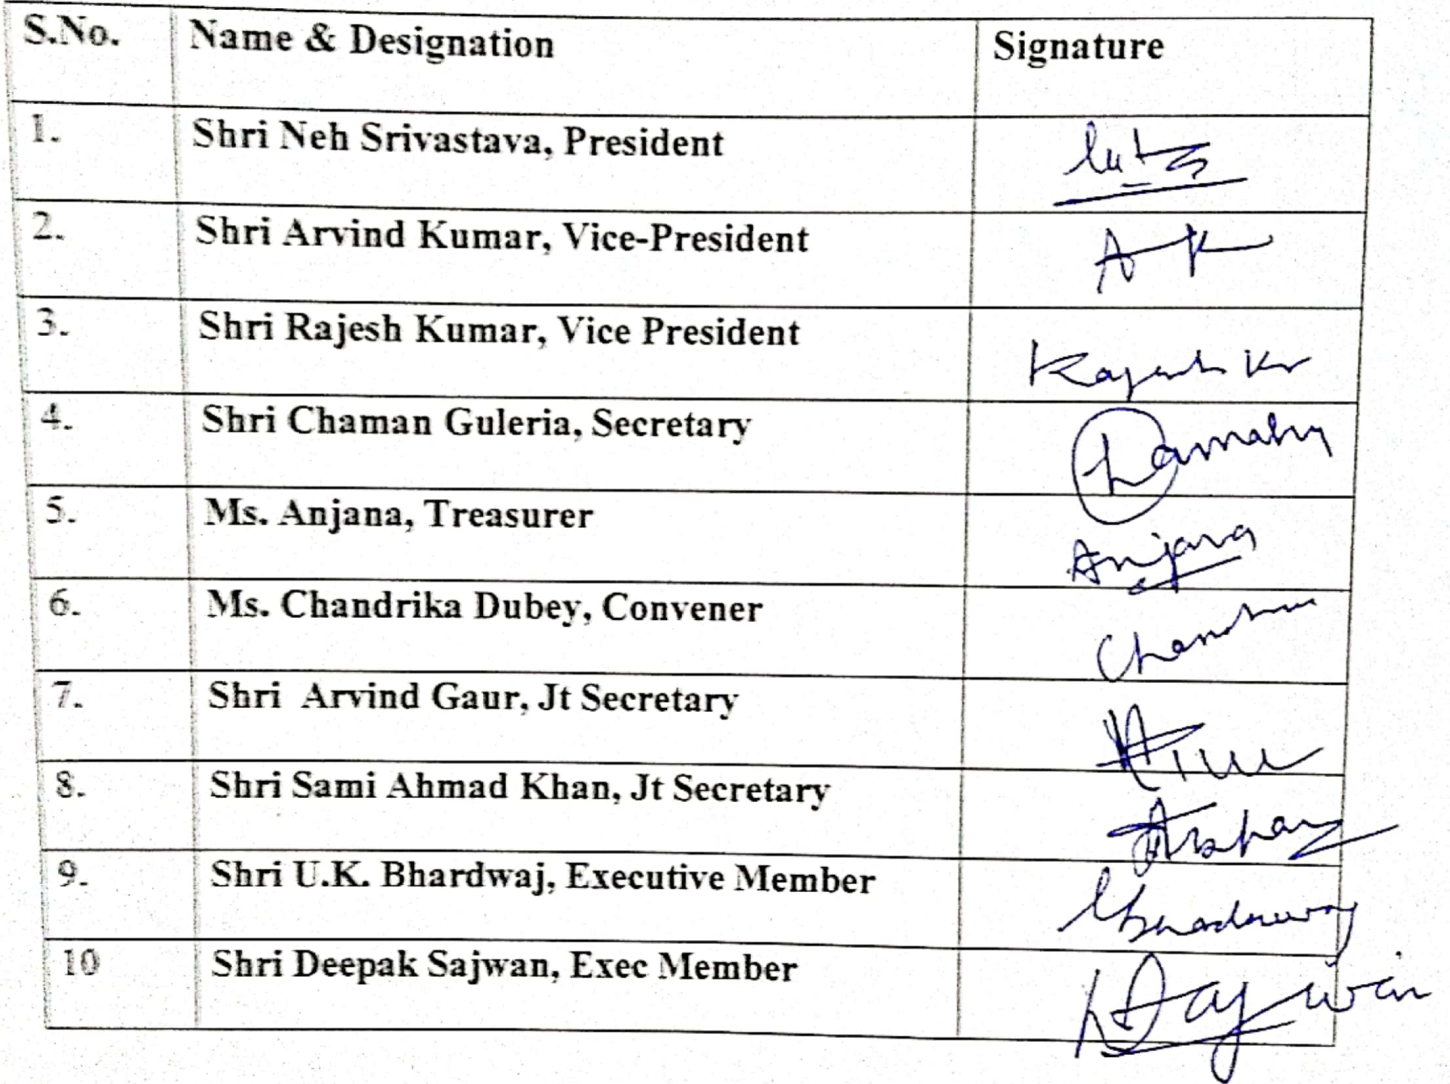 S.No. Name & Designation Signature
1. Shri Neh Srivastava, President
2. Shri Arvind Kumar, Vice-President AK
3. Shri Rajesh Kumar, Vice President Rajesh Kr
4. Shri Chaman Guleria, Secretary
5. Ms. Anjana, Treasurer Anjana
6. Ms. Chandrika Dubey, Convener
7. Shri Arvind Gaur, Jt Secretary
8. Shri Sami Ahmad Khan, Jt Secretary
9. Shri U.K. Bhardwaj, Executive Member
10 Shri Deepak Sajwan, Exec Member